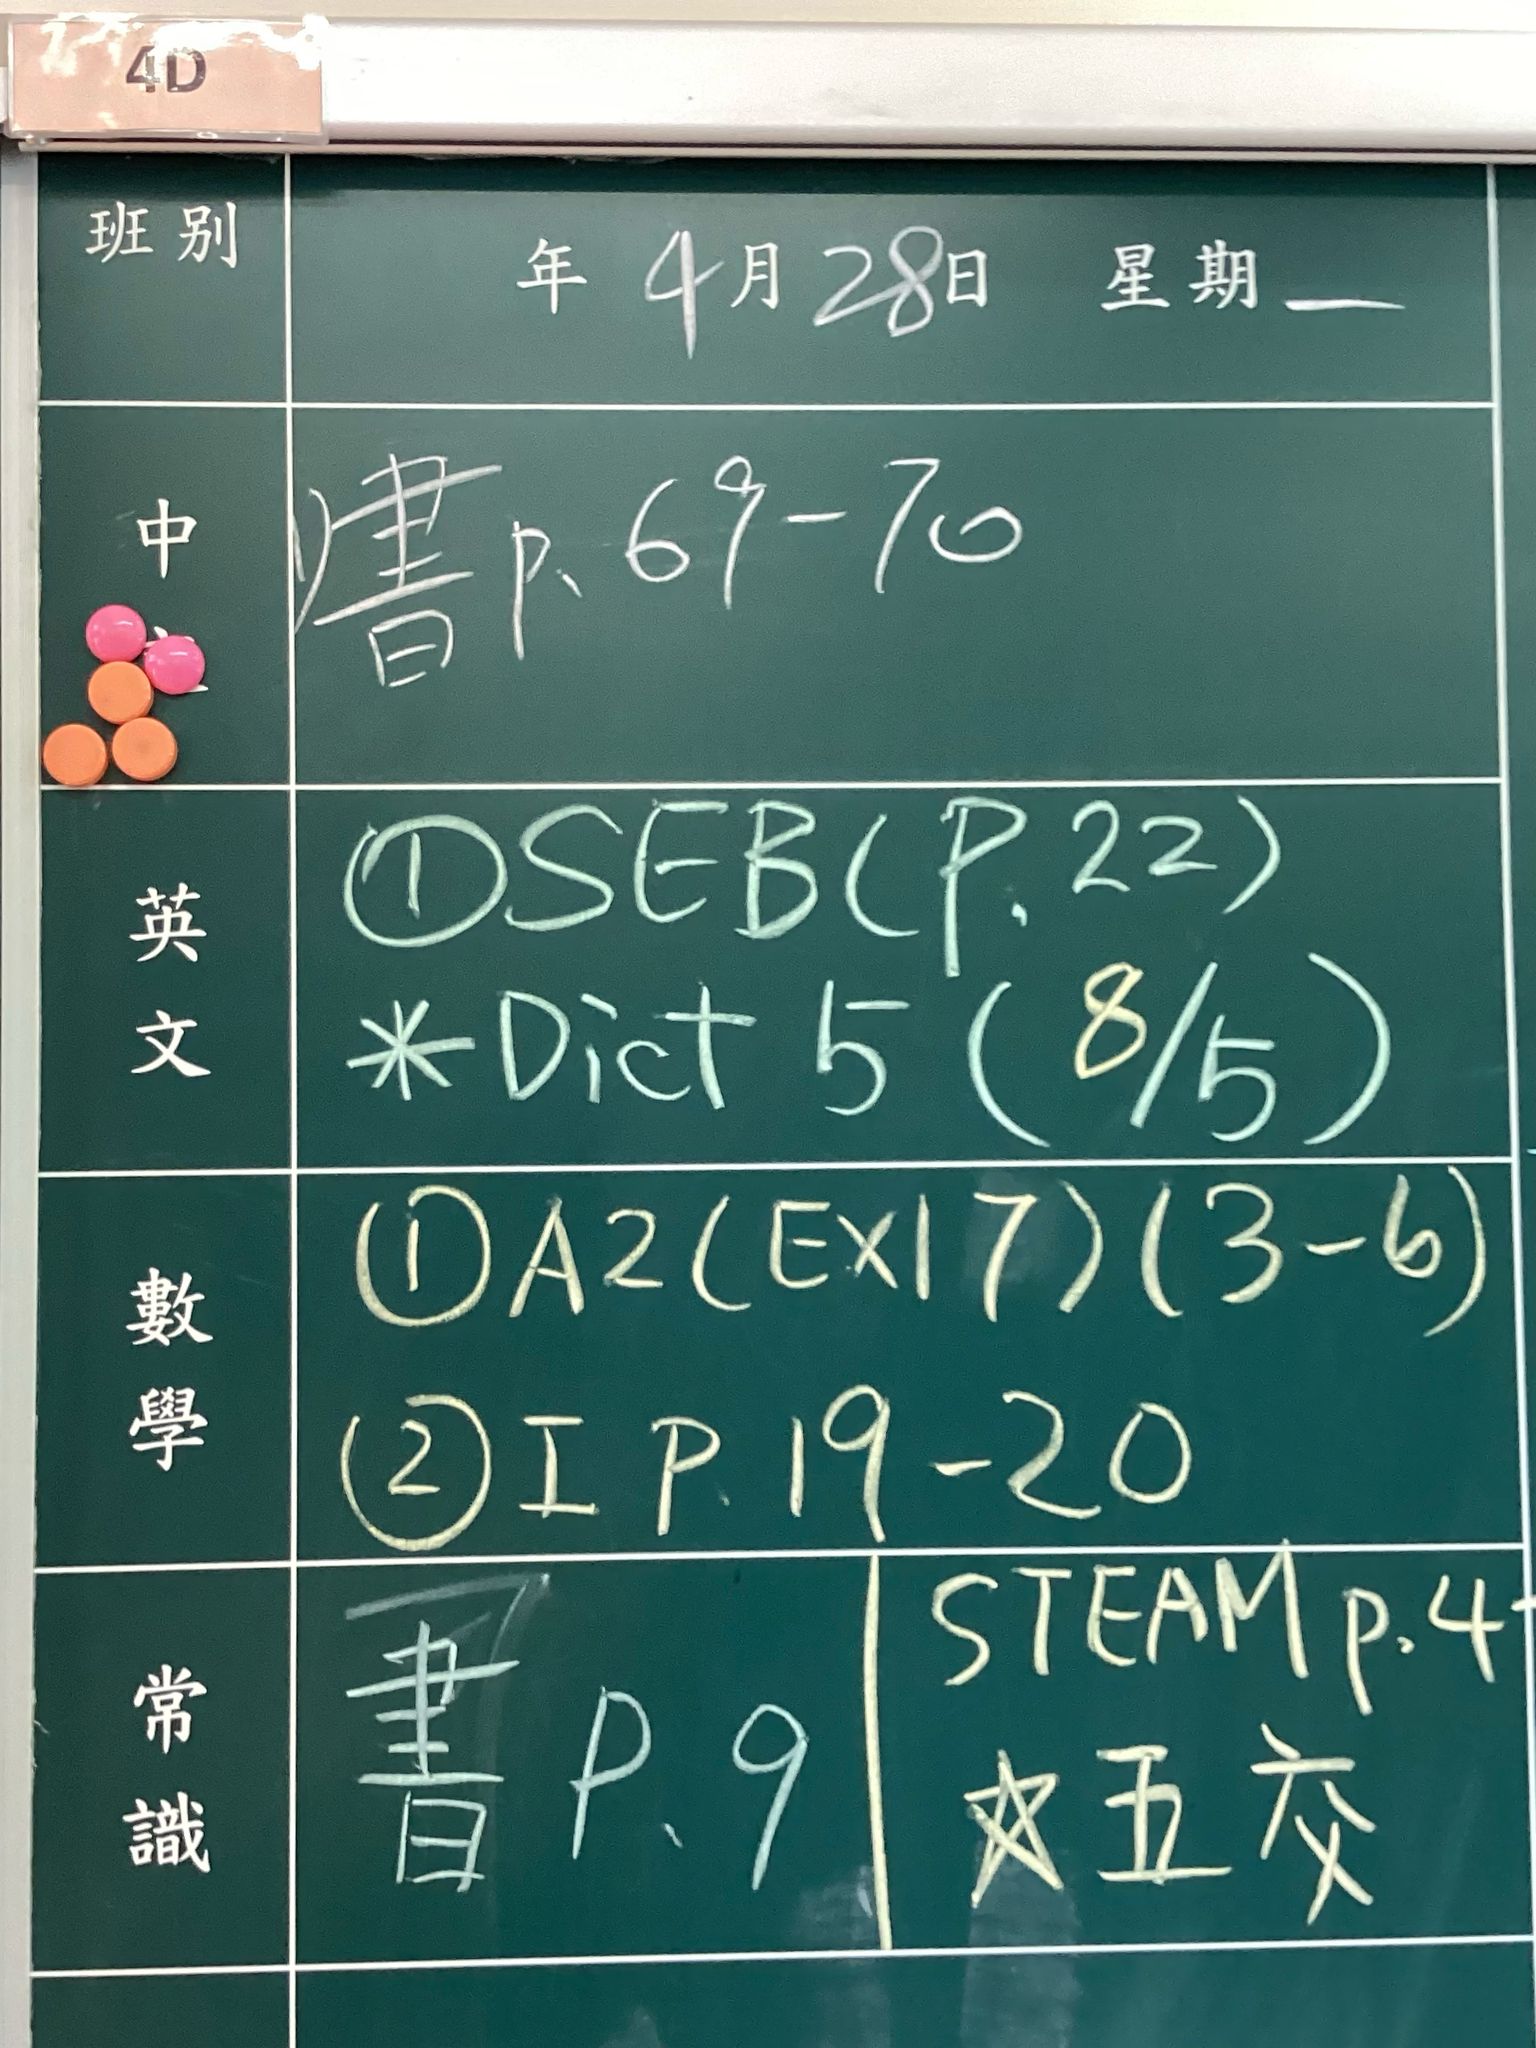 4D
班別
年 4月28日 星期一
中
書 p. 69-70
英文
①SEB(P.22)
*Dict 5 (8/5)
數學
①A2(Ex17)(3-6)
②I P.19-20
常識
書 P.9
STEAM p.4-
☆五交